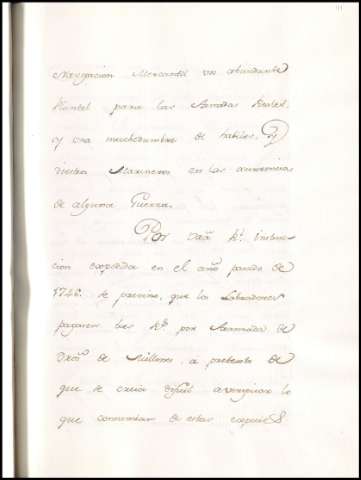 Navegacion Mercantil un abundante
Plantel para las Armadas Reales,
y una muchedumbre de habiles, y
Marineros en las ocurrencias
de alguna Guerra.
Por Vra. Rl. Instruc-
cion expedida en el año pasado de
1748. se previno, que los Labradores
pagasen tres Rs. por Aranzada de
de Millones, a pretexto de
que se creia dificil averiguar lo
que consumian de estas especies